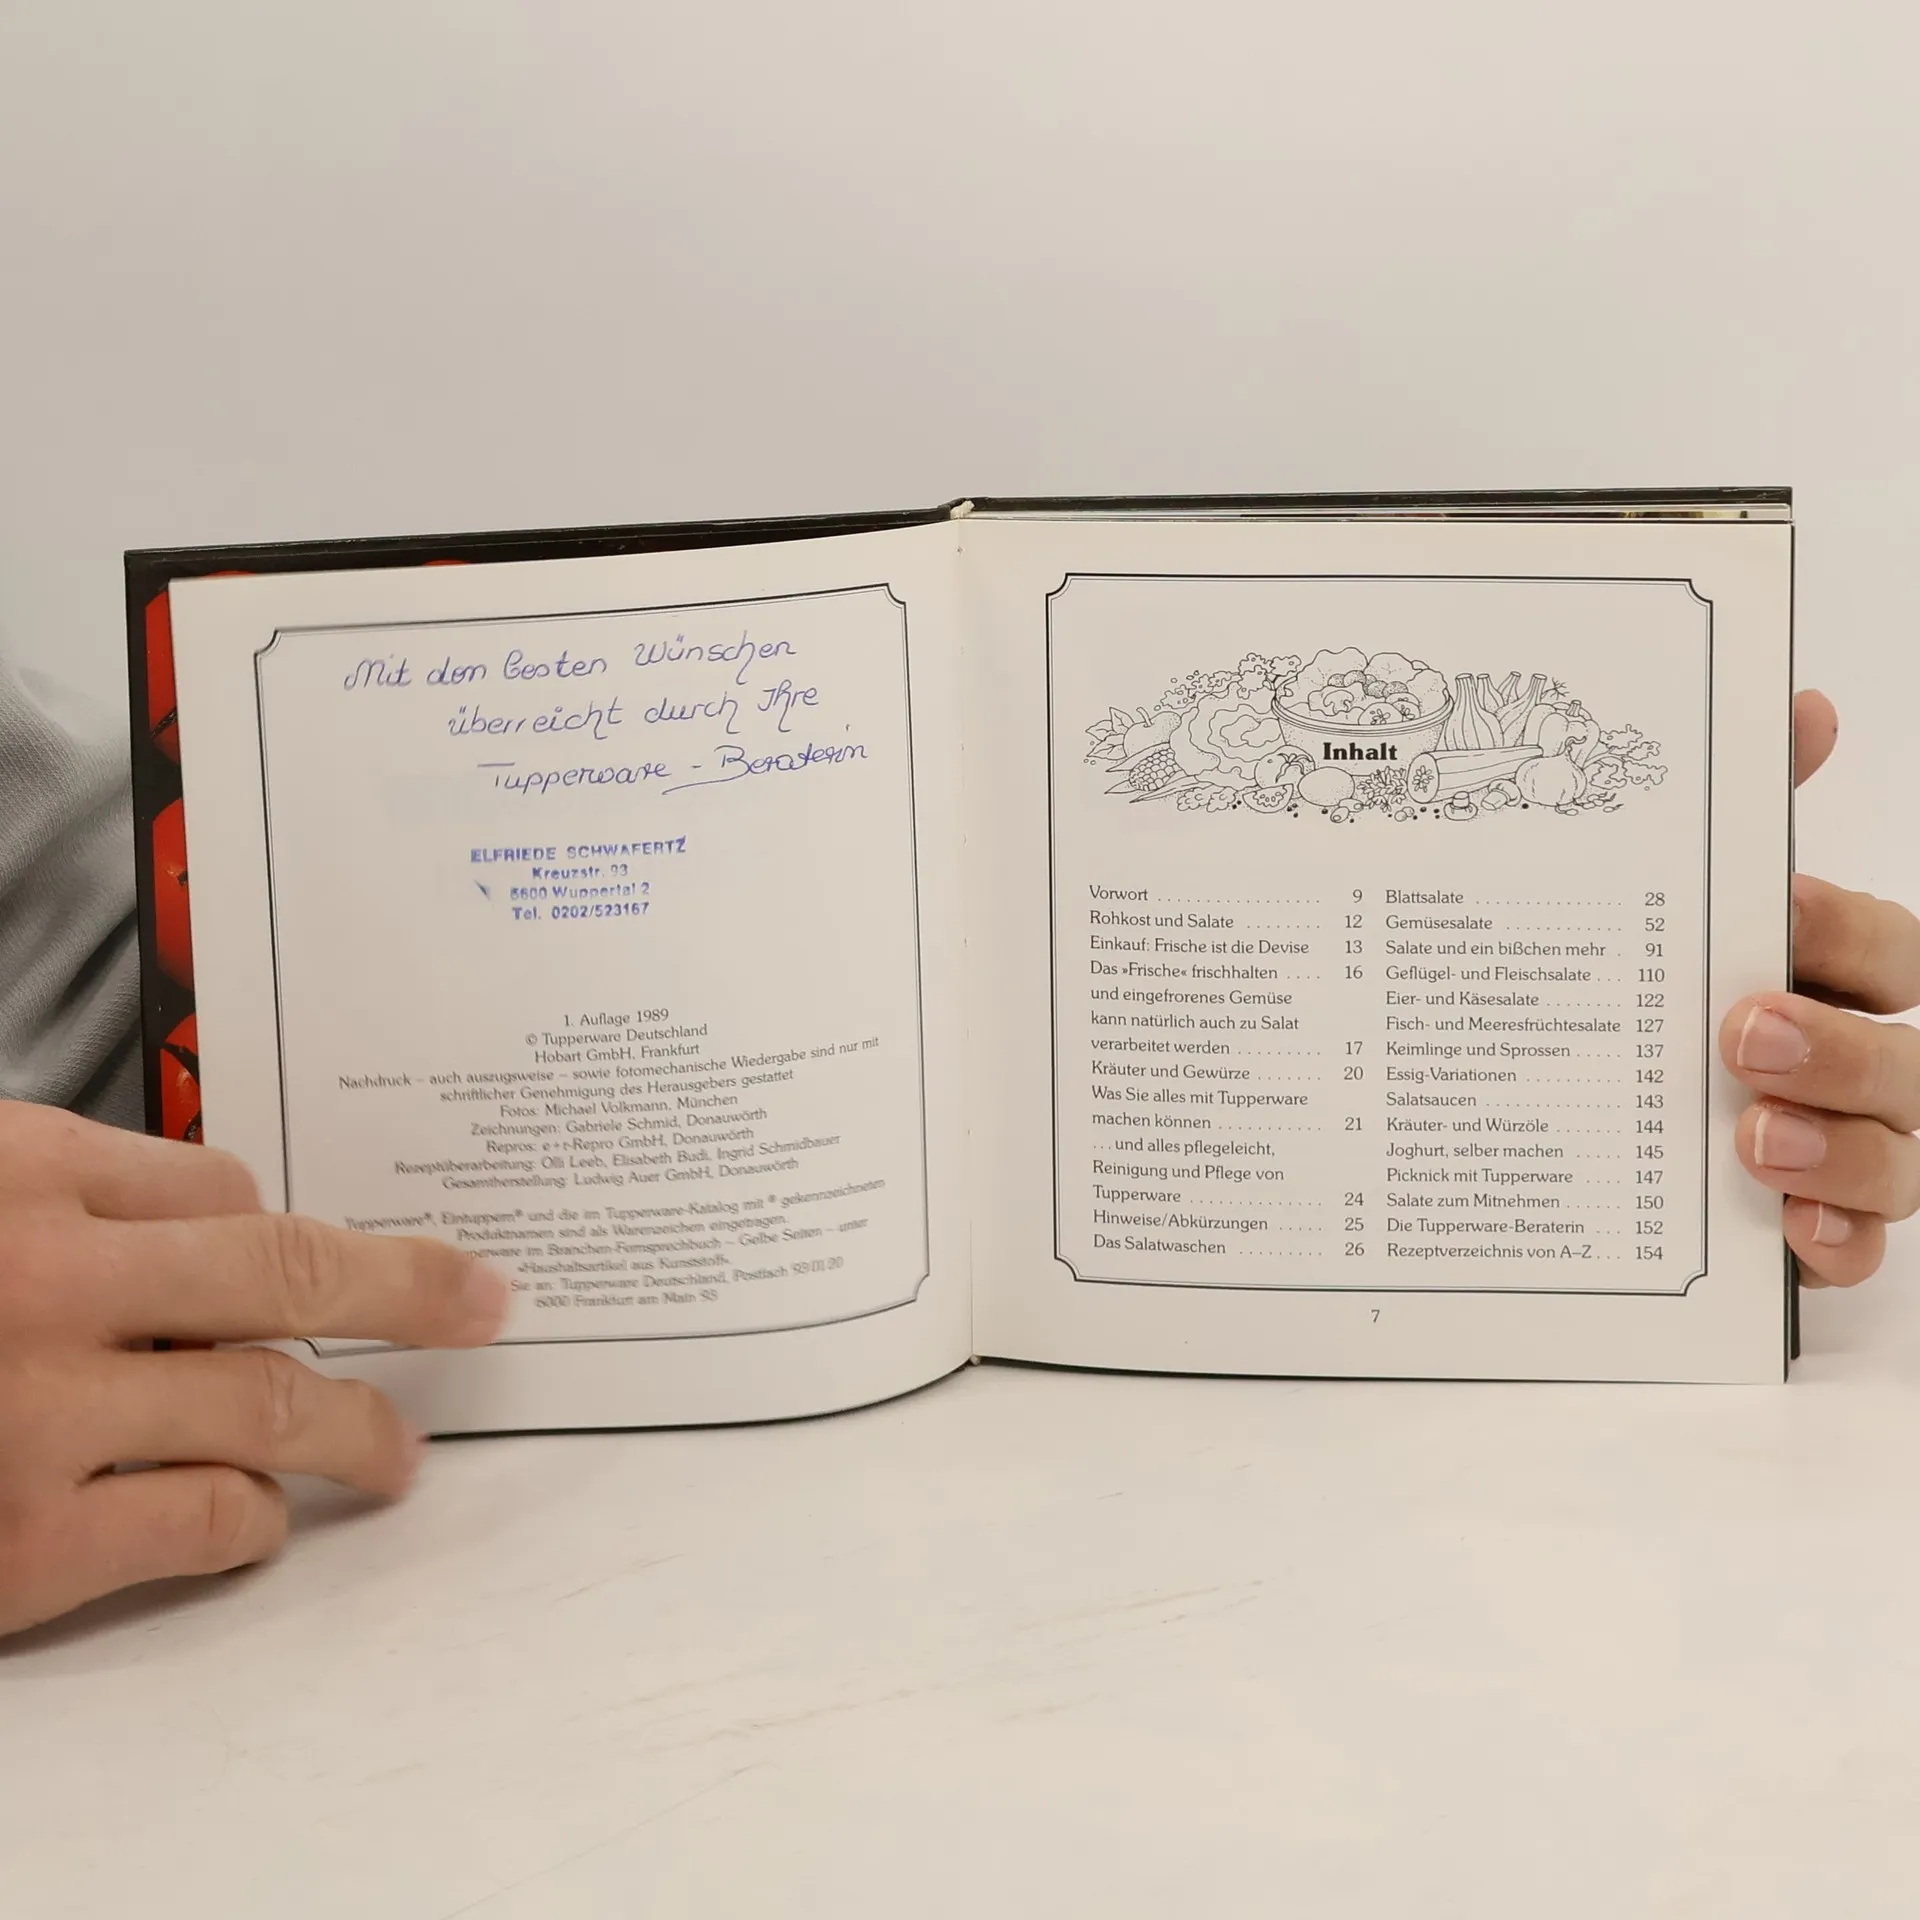 Mit den besten Wünschen
überreicht durch Ihre
Tupperware - Beraterin
ELFRIEDE SCHWAFERTZ
Kreuzstr. 93
5600 Wuppertal 2
Tel. 0202/523167
1. Auflage 1989
© Tupperware Deutschland
Hobart GmbH, Frankfurt
Nachdruck – auch auszugsweise – sowie fotomechanische Wiedergabe sind nur mit
schriftlicher Genehmigung des Herausgebers gestattet
Fotos: Michael Volkmann, München
Zeichnungen: Gabriele Schmid, Donauwörth
Repros: e+r-Repro GmbH, Donauwörth
Rezeptüberarbeitung: Olli Leeb, Elisabeth Budi, Ingrid Schmidbauer
Gesamtherstellung: Ludwig Auer GmbH, Donauwörth
Tupperware®, Eintuppern® und die im Tupperware-Katalog mit ® gekennzeichneten
Produktnamen sind als Warenzeichen eingetragen.
im Branchen-Fernsprechbuch – Gelbe Seiten – unter
»Haushaltsartikel aus Kunststoff«.
Sie an: Tupperware Deutschland, Postfach 93 01 20
6000 Frankfurt am Main 93
Inhalt
Vorwort . . . . . . . . . . . . . . . . . 9
Rohkost und Salate . . . . . . . . 12
Einkauf: Frische ist die Devise 13
Das »Frische« frischhalten . . . . 16
und eingefrorenes Gemüse
kann natürlich auch zu Salat
verarbeitet werden . . . . . . . . . 17
Kräuter und Gewürze . . . . . . . 20
Was Sie alles mit Tupperware
machen können . . . . . . . . . . . 21
. . . und alles pflegeleicht,
Reinigung und Pflege von
Tupperware . . . . . . . . . . . . . . 24
Hinweise/Abkürzungen . . . . . 25
Das Salatwaschen . . . . . . . . . 26
Blattsalate . . . . . . . . . . . . . . . 28
Gemüsesalate . . . . . . . . . . . . 52
Salate und ein bißchen mehr . 91
Geflügel- und Fleischsalate . . . 110
Eier- und Käsesalate . . . . . . . . 122
Fisch- und Meeresfrüchtesalate 127
Keimlinge und Sprossen . . . . . 137
Essig-Variationen . . . . . . . . . . 142
Salatsaucen . . . . . . . . . . . . . . 143
Kräuter- und Würzöle . . . . . . . 144
Joghurt, selber machen . . . . . 145
Picknick mit Tupperware . . . . 147
Salate zum Mitnehmen . . . . . . 150
Die Tupperware-Beraterin . . . 152
Rezeptverzeichnis von A–Z . . . 154
7